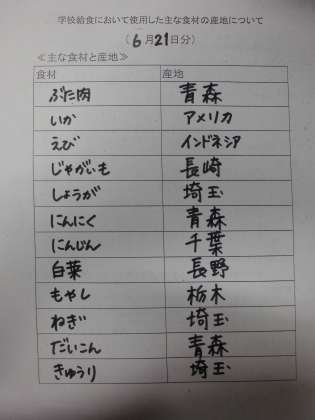 学校給食において使用した主な食材の産地について
(6月21日分)
≪主な食材と産地≫
食材 産地
ぶた肉 青森
いか アメリカ
えび インドネシア
じゃがいも 長崎
しょうが 埼玉
にんにく 青森
にんじん 千葉
白菜 長野
もやし 栃木
ねぎ 埼玉
だいこん 青森
きゅうり 埼玉